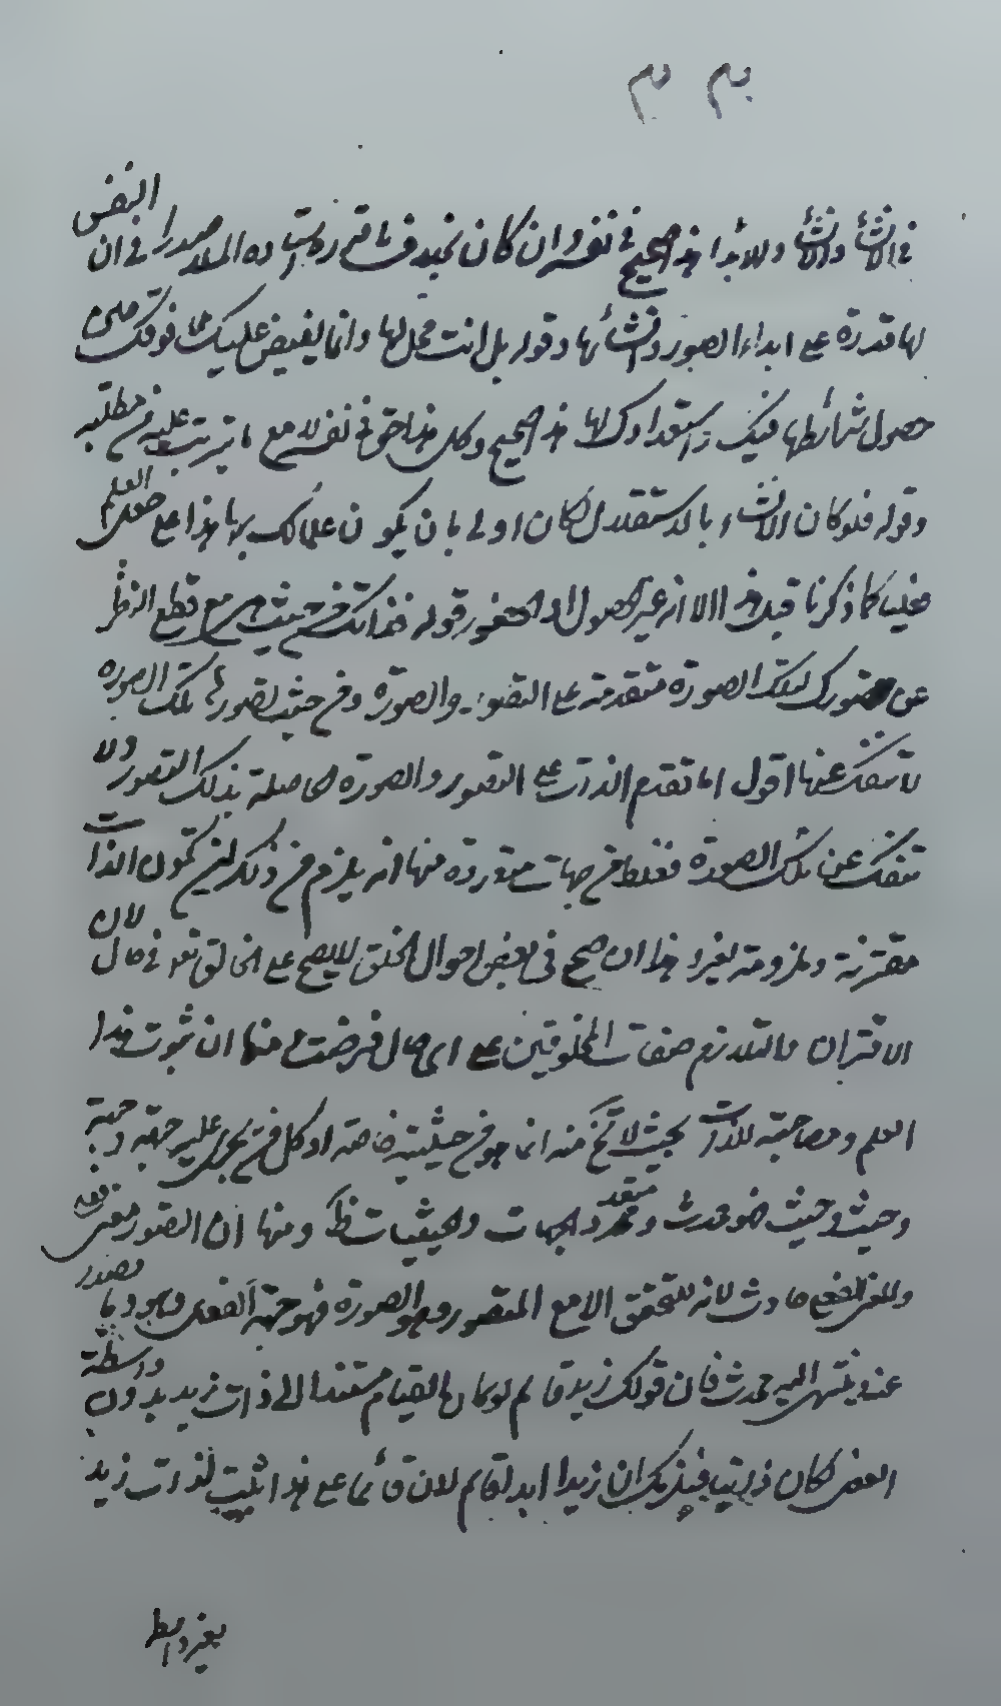 في الانشاء والانشاء وللابدا هذا صحيح في نفسه وان كان المراد صدرا في ان النفس
لها قدرة على ابداء الصور وانشائها وقوله بل انت محل لها وانما يفيض عليك مما فوقك على
حصول شرائطها فيك واستعدادك لها هذا صحيح وكل هذا حق في نفسه لا مع ما يترتب عليه من مطلبه
وقوله فلو كان الانشاء بالاستقلال لكان اولى بان يكون علمك بها هذا على جعل العلم
فعليا كما ذكرنا قبل هذا الا انه غير الحصول او الحضور قوله فذاتك من حيث هي مع قطع النظر
عن تصورك لتلك الصورة متقدمة على التصور والصورة ومن حيث تصورها تلك الصورة
لا تنفك عنها اقول اما تقدم الذات على التصور والصورة الحاصلة بذلك التصور ولا
تنفك عن تلك الصورة فغلط من جهات متعددة منها انه يلزم من ذلك ان تكون الذات
مقترنة وملزومة لغيره هذا ان صح في بعض احوال الخلق لا يصح على الخالق تعالى في حال لان
الاقتران والتلازم صفات المخلوقين على اي حال فرضت ومنها ان ثبوت هذا
العلم ومصاحبته للذات بحيث لا تخ منه انما هو من حيثية خاصة او كل من يجري عليه جهة وجهة
وحيث وحيث فهو محدث ومتعدد الجهات والحيثيات ومنها ان التصور معنى فعلى
والمعنى الفعلي حادث لانه لا يتحقق الا مع المتصور وهو الصورة فهو جهة الفعل وما هو مصدر
عنه وينتهي اليه محدث فان قولك زيد قائم لو كان القيام مستندا الى ذات زيد بدون واسطة
الفعل لكان ذاتيا فيلزمك ان زيدا ابدا قائم لان قائما على هذا ثبت لذات زيد
بغير واسطة